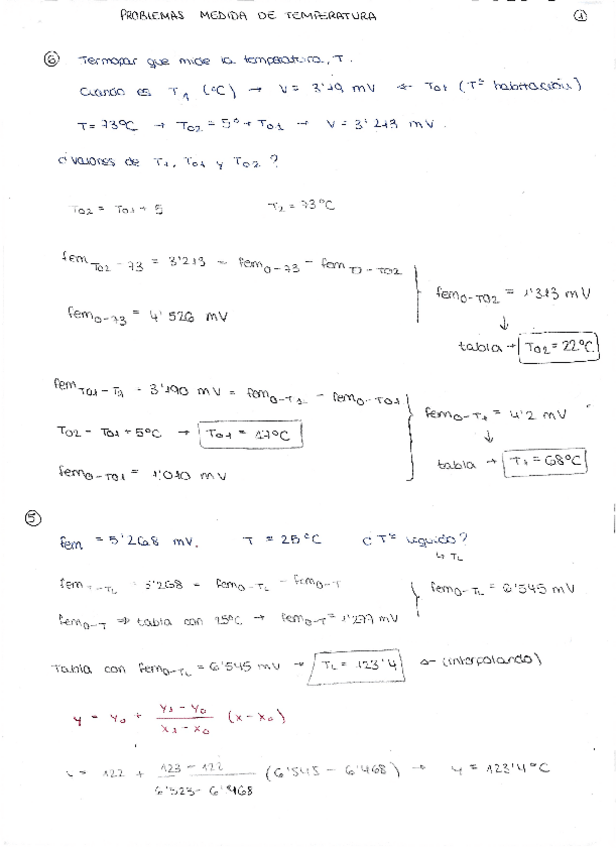 PROBLEMAS MEDIDA DE TEMPERATURA
①
⑥ Termopar que mide la temperatura, T.
Cuando es T₁ (ºC) → V = 3'19 mV T01 (Tª habitación)
T = 73ºC → T02 = 5º + T01 → V = 3'213 mV.
¿valores de T1, T01 y T02?
T02 = T01 + 5 T2 = 73ºC
fem T02-73 = 3'213 = fem0-73 - fem
fem0-73 = 4'526 mV
fem0-T02 = 1'313 mV
↓
tabla → T02 = 22ºC
fem T01-T1 = 3'190 mV = fem0-T1 - fem0-T01
T02 = T01 + 5ºC → T01 = 17ºC
fem0-T01 = 1'010 mV
fem0-T1 = 4'2 mV
↓
tabla → T1 = 68ºC
⑤
fem = 5'268 mV. T = 25ºC ¿Tª líquido?
↳ TL
femT-TL = 5'268 = fem0-TL - fem0-T
fem0-T ⇒ tabla con 25ºC → fem0-T = 1'277 mV
fem0-TL = 6'545 mV
Tabla con fem0-TL = 6'545 mV → TL = 123'4 (interpolando)
y = y0 + (y1 - y0)/(x1 - x0) (x - x0)
y = 122 + (123 - 122)/(6'523 - 6'468) (6'545 - 6'468) → y = 123'4ºC